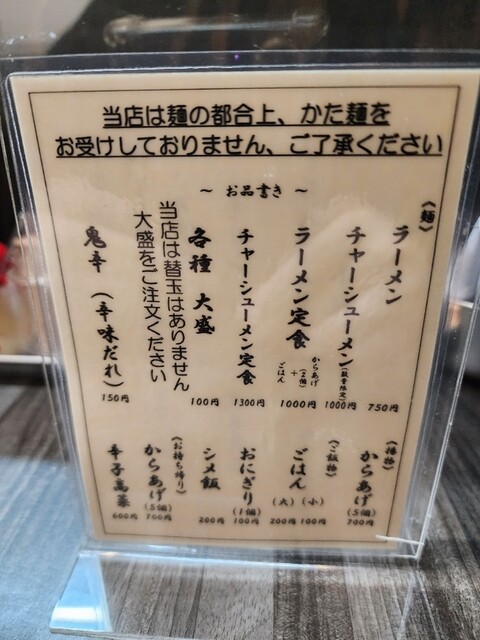 当店は麺の都合上、かた麺を
お受けしておりません、ご了承ください
～ お品書き ～
《麺》
ラーメン 750円
チャーシューメン(数量限定) 1000円
ラーメン定食 からあげ(2個)+ごはん 1000円
チャーシューメン定食 1300円
各種 大盛 100円
当店は替玉はありません
大盛をご注文ください
鬼辛 (辛味だれ) 150円
からあげ(5個) 700円
《ご飯物》
ごはん (小) 100円
(大) 200円
おにぎり(1個) 100円
シメ飯 200円
《お持ち帰り》
からあげ(5個) 700円
辛子高菜 600円